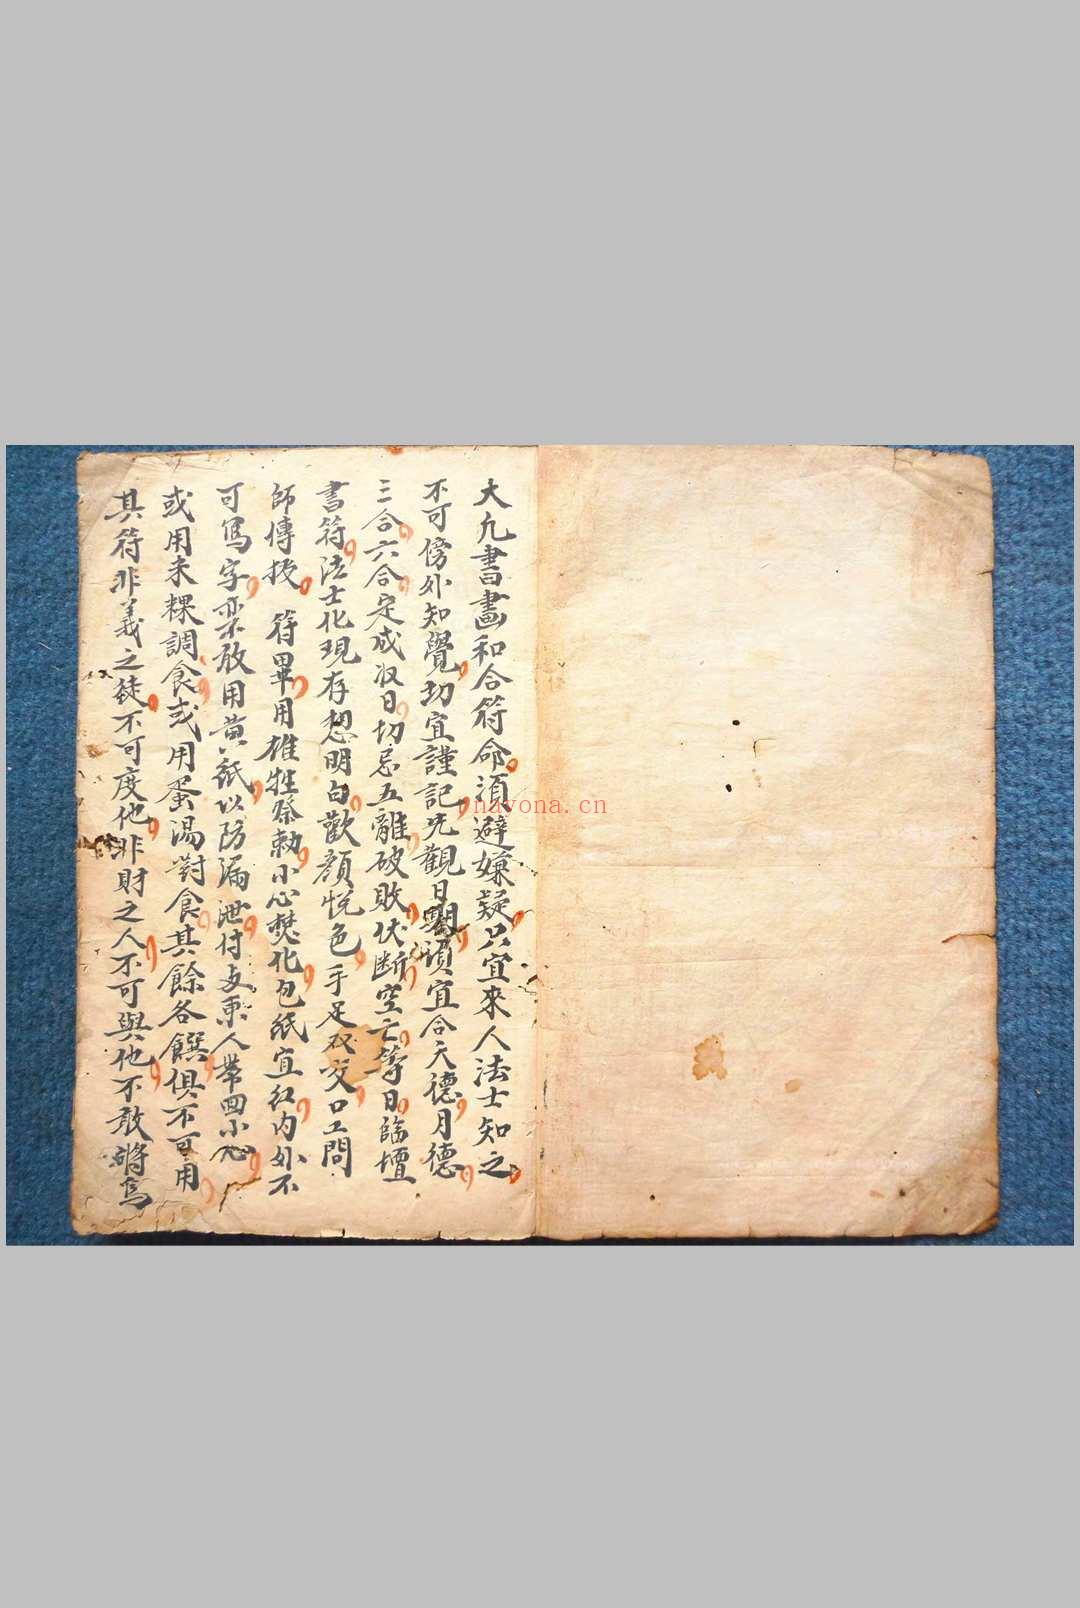 大凡書畫和合符命須避嫌疑只宜來人法士知之
不可傍外知覺切宜謹記先觀日期須宜合天德月德
三合六合定成收日切忌五離破敗伏断空亡等日臨壇
書符法士化現存想明白歡顔悦色手足双交口工問
師傳授 符畢用雄牲祭勅小心焚化包紙宜红内外不
可写字亦放用黄紙以防漏泄付与東人帶回小心
或用米粿調食或用蛋湯對食其餘各饌俱不可用
其符非義之徒不可度他非財之人不可與他不敢將為
nayona.cn